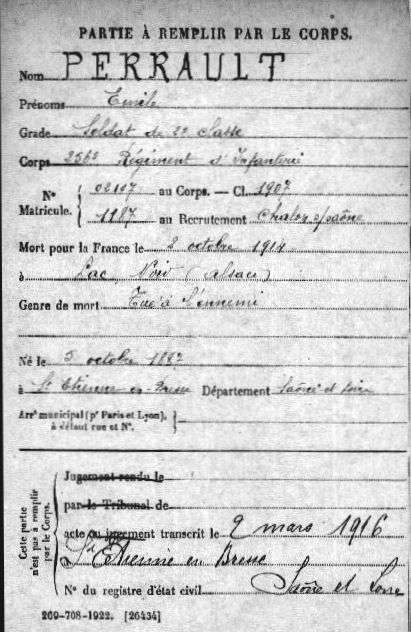 PARTIE À REMPLIR PAR LE CORPS.
Nom PERRAULT
Prénoms Emile
Grade Soldat de 2e Classe
Corps 256e Régiment d'Infanterie
N° Matricule. 02107 au Corps. — Cl. 1907
1187 au Recrutement Chalon s/Saône
Mort pour la France le 8 octobre 1914
à Lac Noir (Alsace)
Genre de mort Tué à l'ennemi
Né le 3 octobre 1887
à St Etienne en Bresse Département Saône et Loire
Arrt municipal (pr Paris et Lyon), à défaut rue et N°.
Cette partie n'est pas à remplir par le Corps.
Jugement rendu le
par le Tribunal de
acte ou jugement transcrit le 2 mars 1916
à St Etienne en Bresse
N° du registre d'état civil Saône et Loire
269-708-1922. [26434]